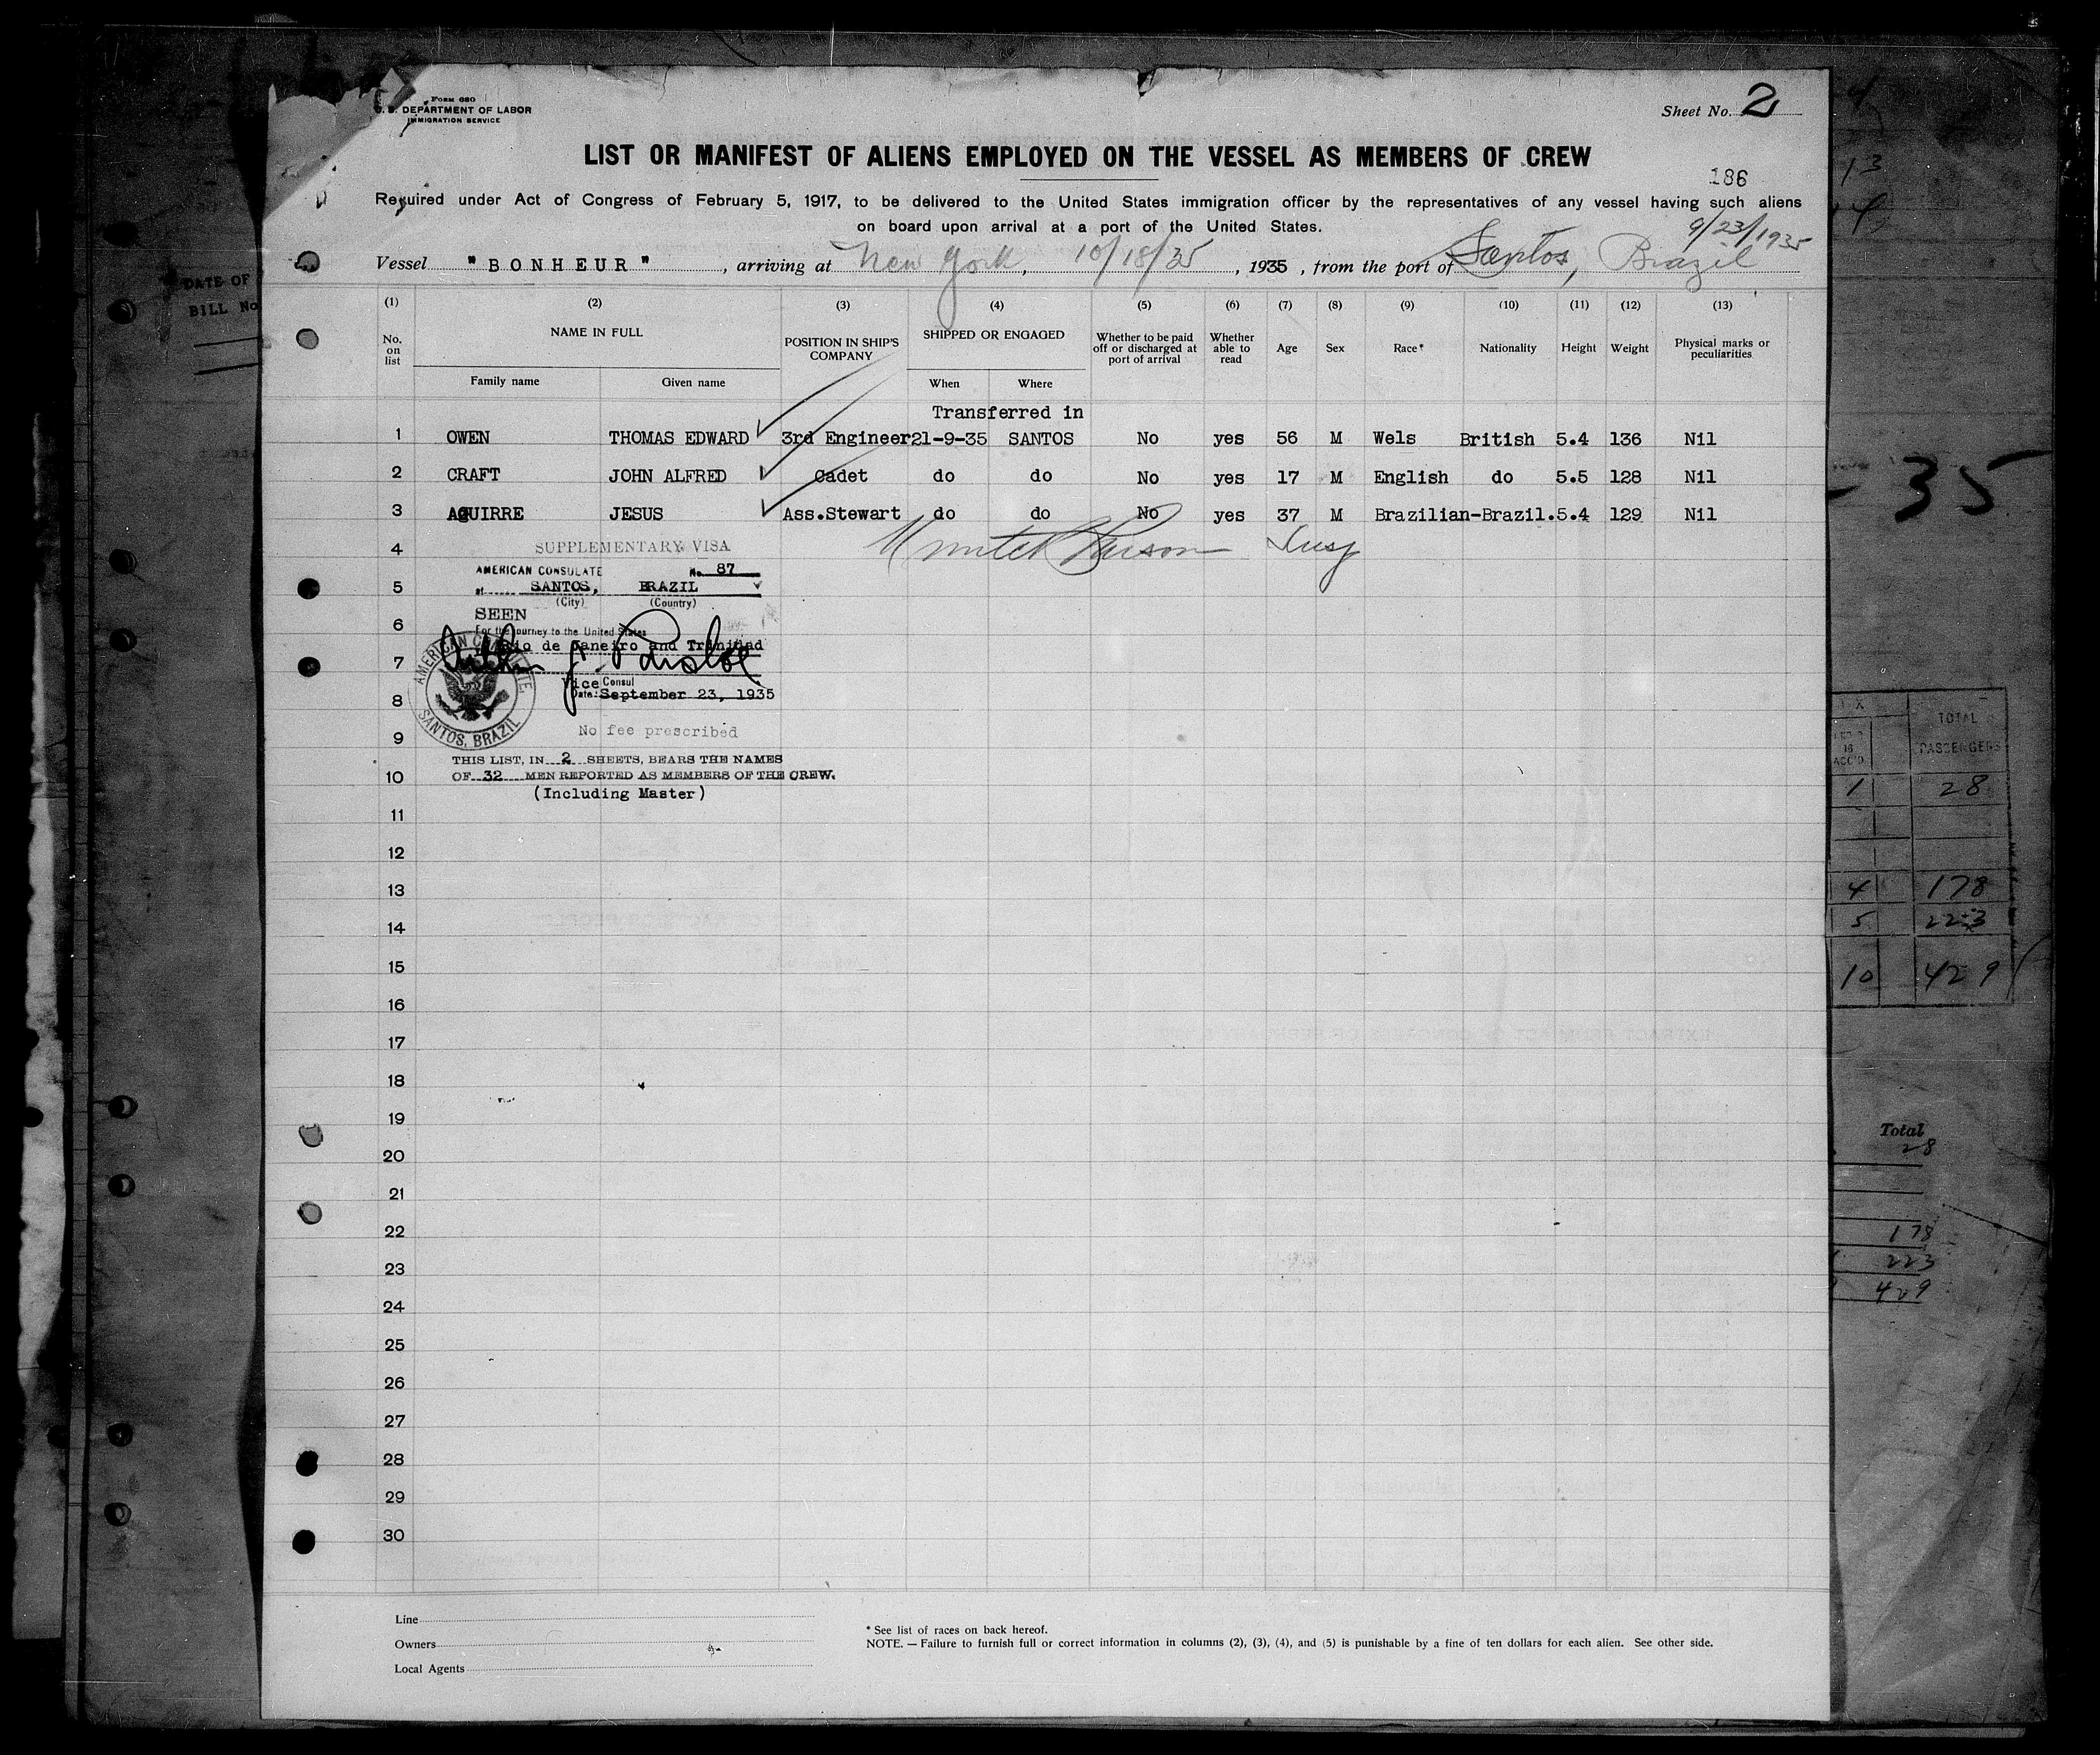 Form 680
U. S. DEPARTMENT OF LABOR
IMMIGRATION SERVICE
Sheet No. 2
LIST OR MANIFEST OF ALIENS EMPLOYED ON THE VESSEL AS MEMBERS OF CREW
186
Required under Act of Congress of February 5, 1917, to be delivered to the United States immigration officer by the representatives of any vessel having such aliens
on board upon arrival at a port of the United States.
9/23/1935
Vessel "BONHEUR", arriving at New York, 10/18/35, 1935, from the port of Santos, Brazil
(1) (2) (3) (4) (5) (6) (7) (8) (9) (10) (11) (12) (13)
No. on list NAME IN FULL POSITION IN SHIP'S COMPANY SHIPPED OR ENGAGED Whether to be paid off or discharged at port of arrival Whether able to read Age Sex Race* Nationality Height Weight Physical marks or peculiarities
Family name Given name When Where
Transferred in
1 OWEN THOMAS EDWARD 3rd Engineer 21-9-35 SANTOS No yes 56 M Wels British 5.4 136 Nil
2 CRAFT JOHN ALFRED Cadet do do No yes 17 M English do 5.5 128 Nil
3 AGUIRRE JESUS Ass.Stewart do do No yes 37 M Brazilian-Brazil. 5.4 129 Nil
4 SUPPLEMENTARY VISA
AMERICAN CONSULATE No. 87
5 at SANTOS, BRAZIL
(City) (Country)
SEEN
6 For the journey to the United States
Rio de Janeiro and Trinidad
7
Vice Consul
8 Date: September 23, 1935
AMERICAN CONSULATE
SANTOS, BRAZIL
9 No fee prescribed
THIS LIST, IN 2 SHEETS, BEARS THE NAMES
10 OF 32 MEN REPORTED AS MEMBERS OF THE CREW.
(Including Master)
11
12
13
14
15
16
17
18
19
20
21
22
23
24
25
26
27
28
29
30
Line
Owners
Local Agents
* See list of races on back hereof.
NOTE. — Failure to furnish full or correct information in columns (2), (3), (4), and (5) is punishable by a fine of ten dollars for each alien. See other side.
DATE OF
BILL No
13
35
TOTAL
PASSENGERS
ACC'D
1 28
4 178
5 223
10 429
Total
28
178
223
429